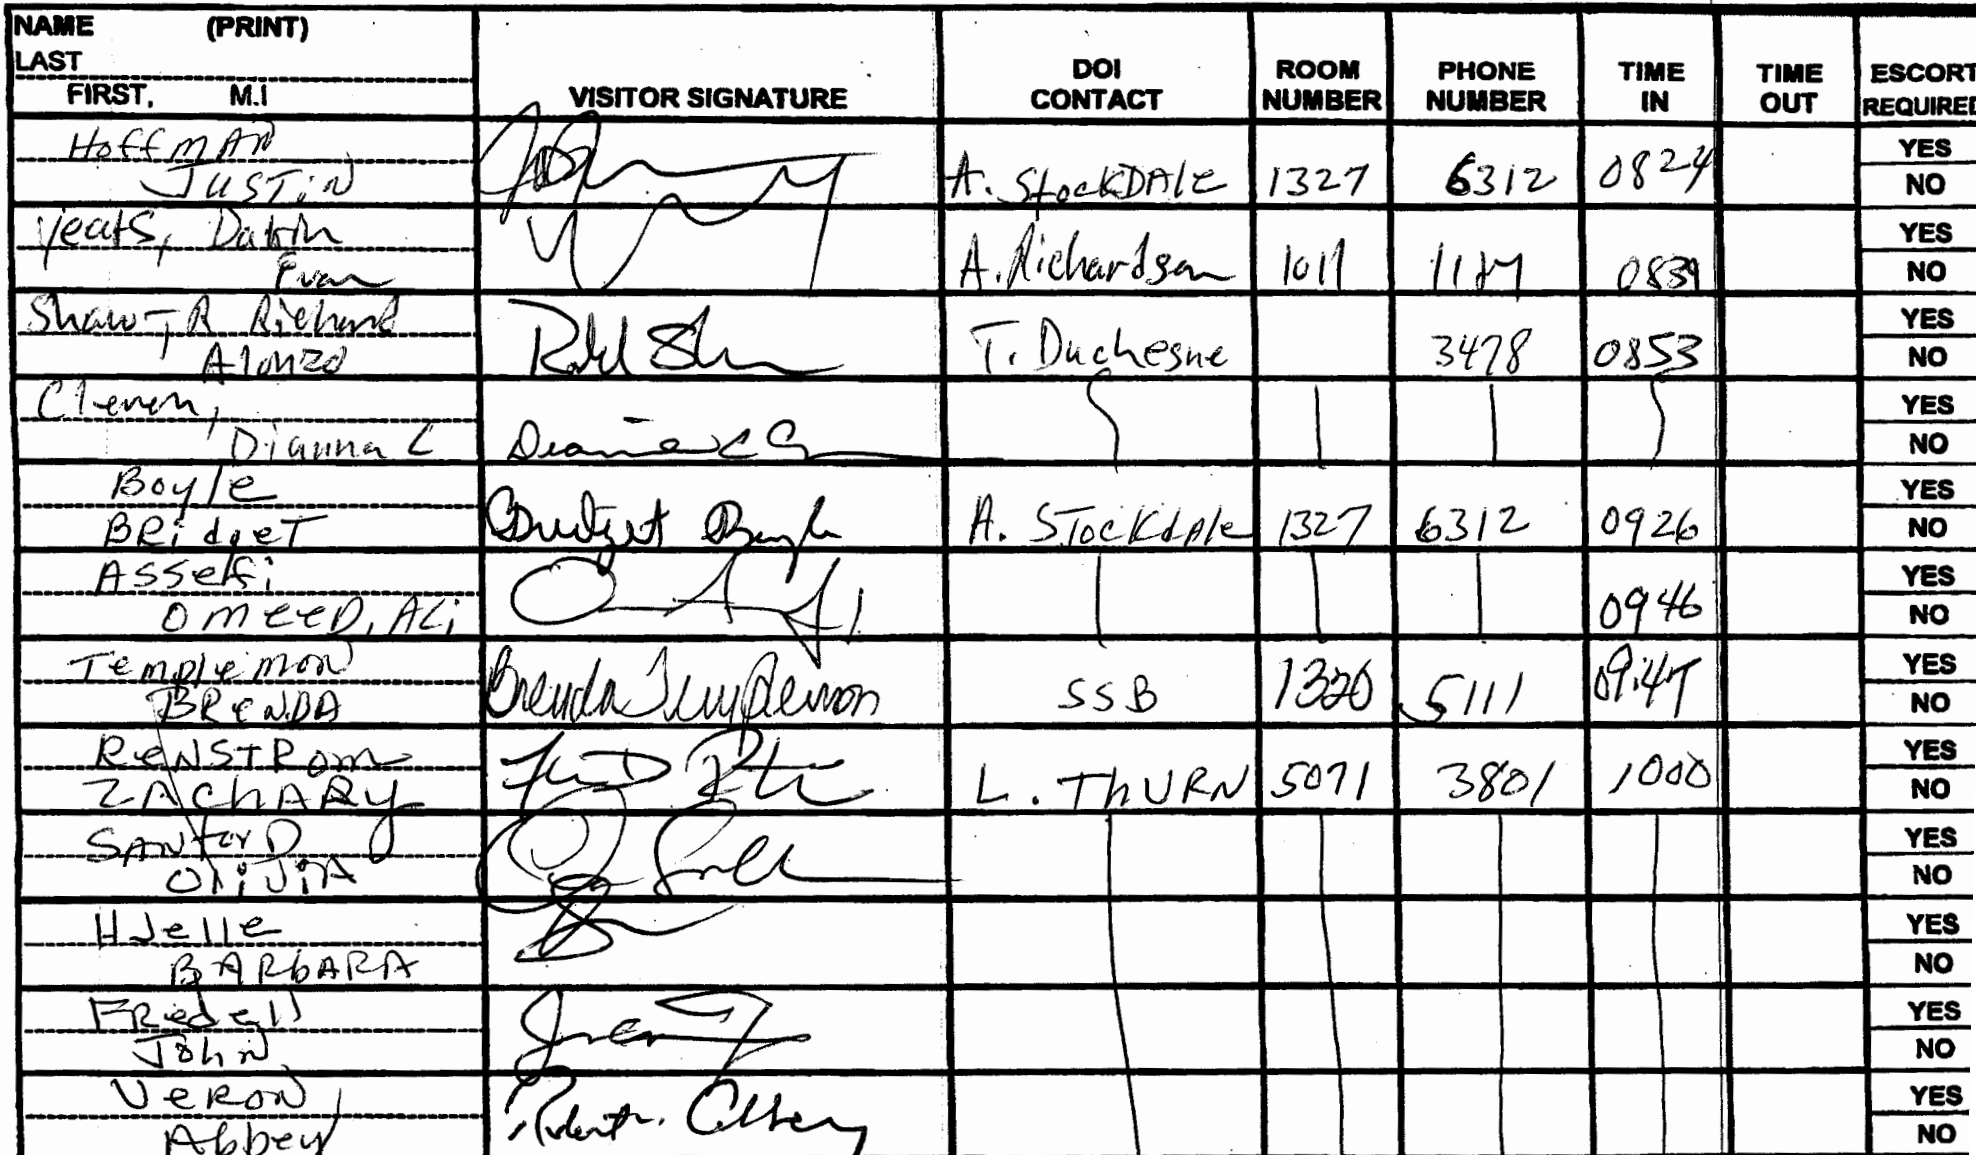 NAME (PRINT)
LAST
FIRST, M.I
VISITOR SIGNATURE
DOI CONTACT
ROOM NUMBER
PHONE NUMBER
TIME IN
TIME OUT
ESCORT REQUIRED
HoffmAN
JUSTiN
A. StockDAle 1327 6312 0824
YES
NO
Yeats,
Evan
A. Richardson 1011 0839
YES
NO
Shaw Richard
Alonzo
T. Duchesne 3478 0853
YES
NO
Dianna C
YES
NO
Boyle
BRidgeT
Bridget Boyle
A. STockdAle 1327 6312 0926
YES
NO
ASSefi
OmeeD, ALi
0946
YES
NO
Templemon
BReNDA
Brenda Templemon
SSB 1320 5111 09:47
YES
NO
ReNSTRom
ZAChARy
L. ThURN 5071 3801 1000
YES
NO
SANforD
OliViA
YES
NO
HJelle
BARbARA
YES
NO
FRiedell
John
YES
NO
VeRoN
Abbey
YES
NO